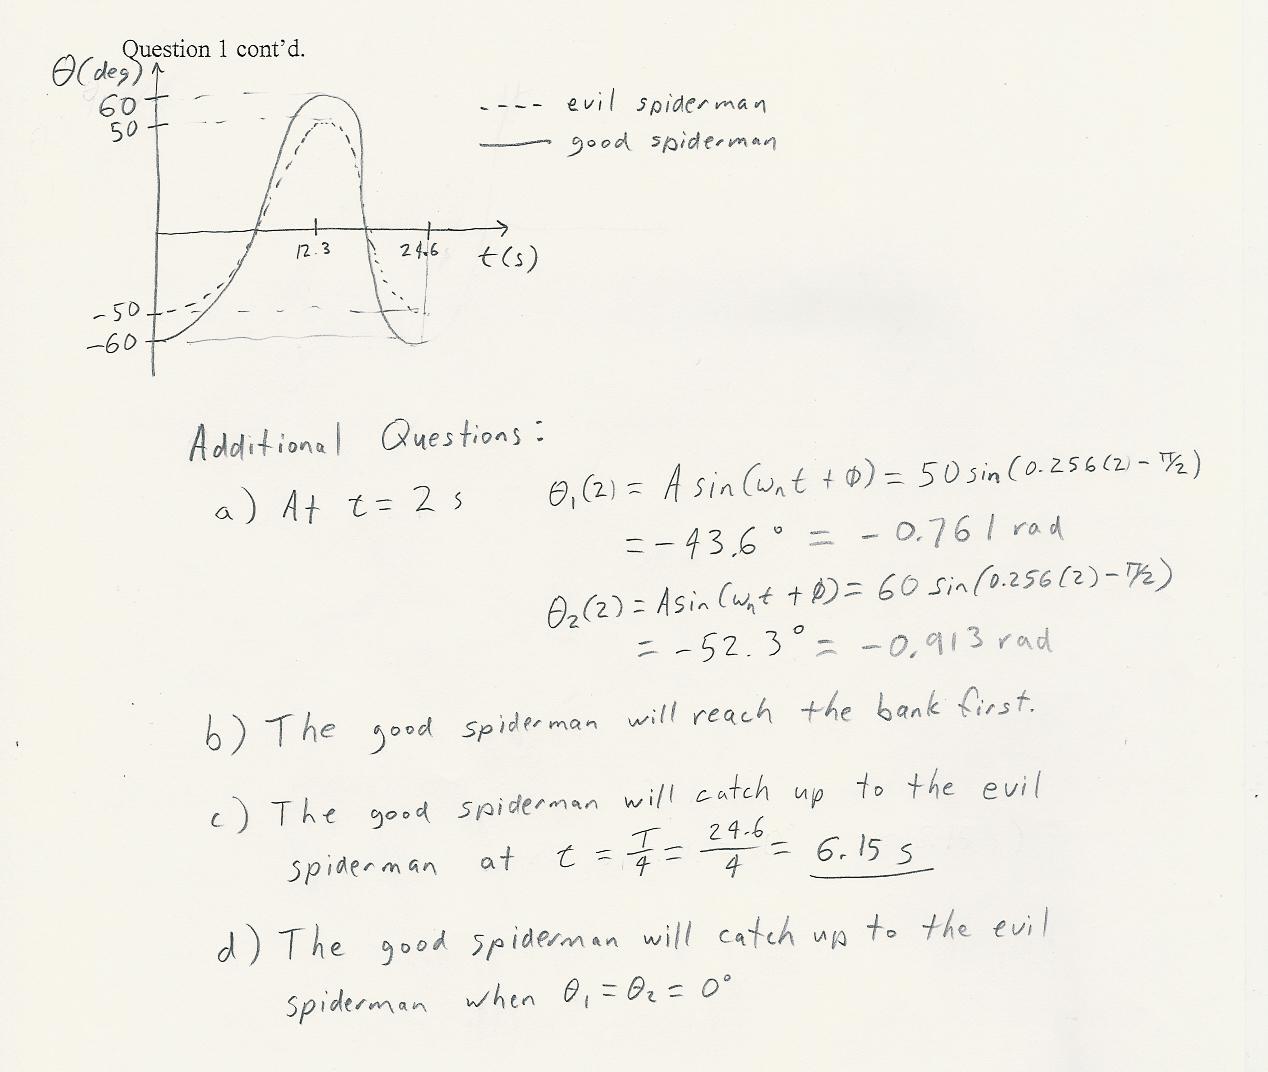 Question 1 cont'd.
θ(deg)
60
50
---- evil spiderman
—— good spiderman
12.3
24.6
t(s)
-50
-60
Additional Questions:
a) At t = 2 s
θ₁(2) = A sin(ωₙt + φ) = 50 sin(0.256(2) - π/2)
= -43.6° = -0.761 rad
θ₂(2) = A sin(ωₙt + φ) = 60 sin(0.256(2) - π/2)
= -52.3° = -0.913 rad
b) The good spiderman will reach the bank first.
c) The good spiderman will catch up to the evil
spiderman at t = T/4 = 24.6/4 = 6.15 s
d) The good spiderman will catch up to the evil
spiderman when θ₁ = θ₂ = 0°